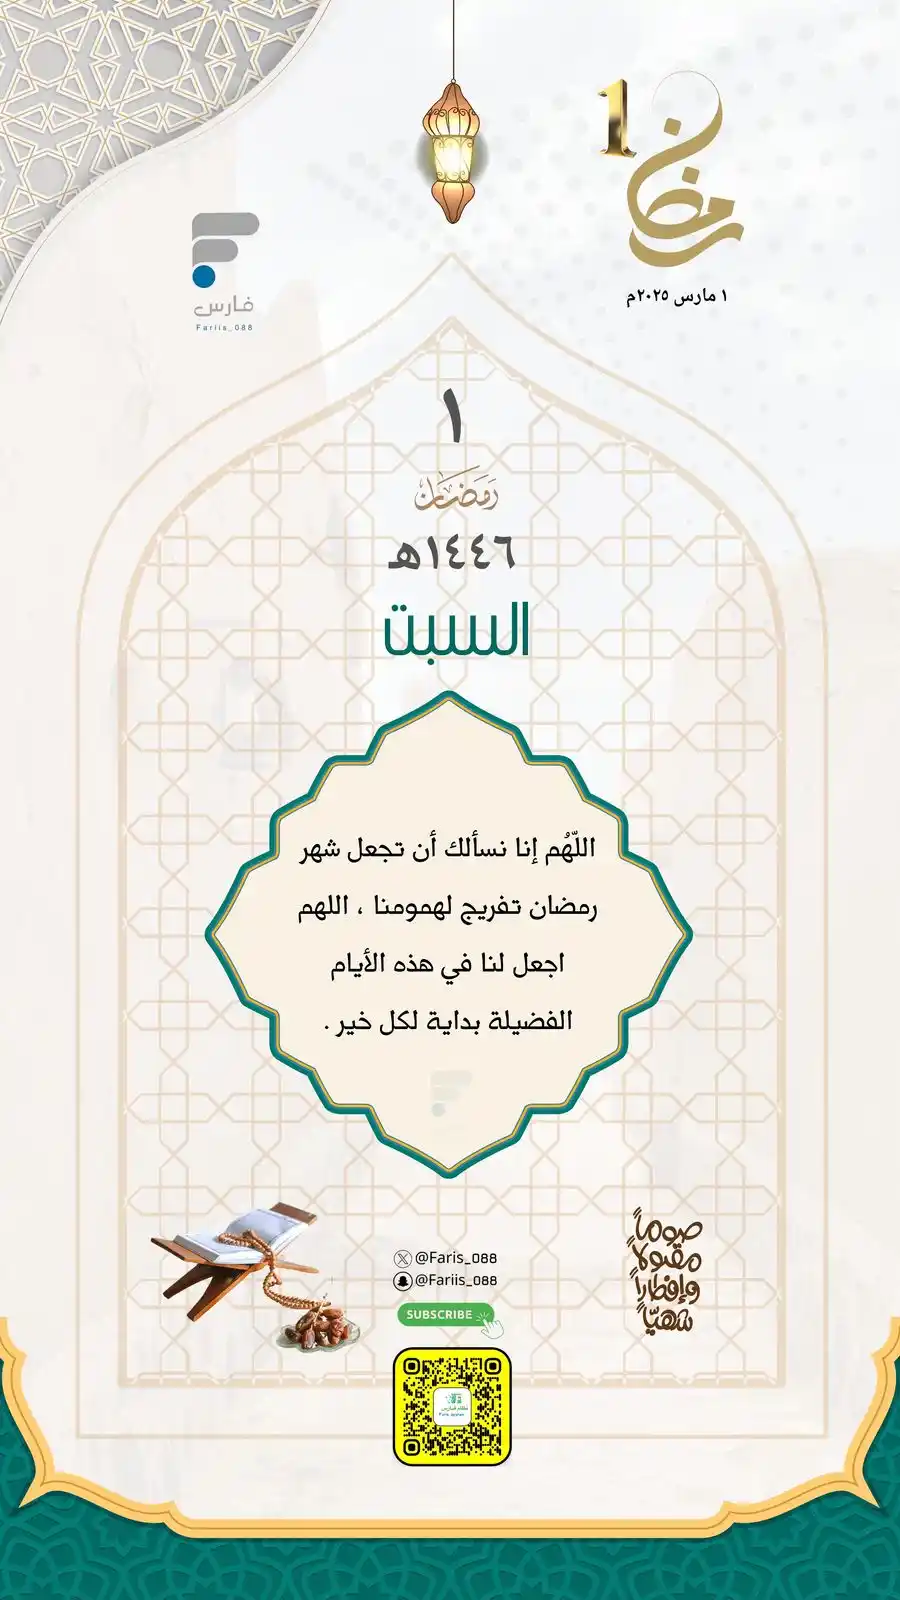 1
رمضان
١ مارس ٢٠٢٥م
فارس
Fariis_088
١
رَمَضَان
١٤٤٦هـ
السبت
اللّهُم إنا نسألك أن تجعل شهر
رمضان تفريج لهمومنا ، اللهم
اجعل لنا في هذه الأيام
الفضيلة بداية لكل خير .
@Faris_088
@Fariis_088
SUBSCRIBE
صوماً
مقبولاً
وإفطاراً
شهيّاً